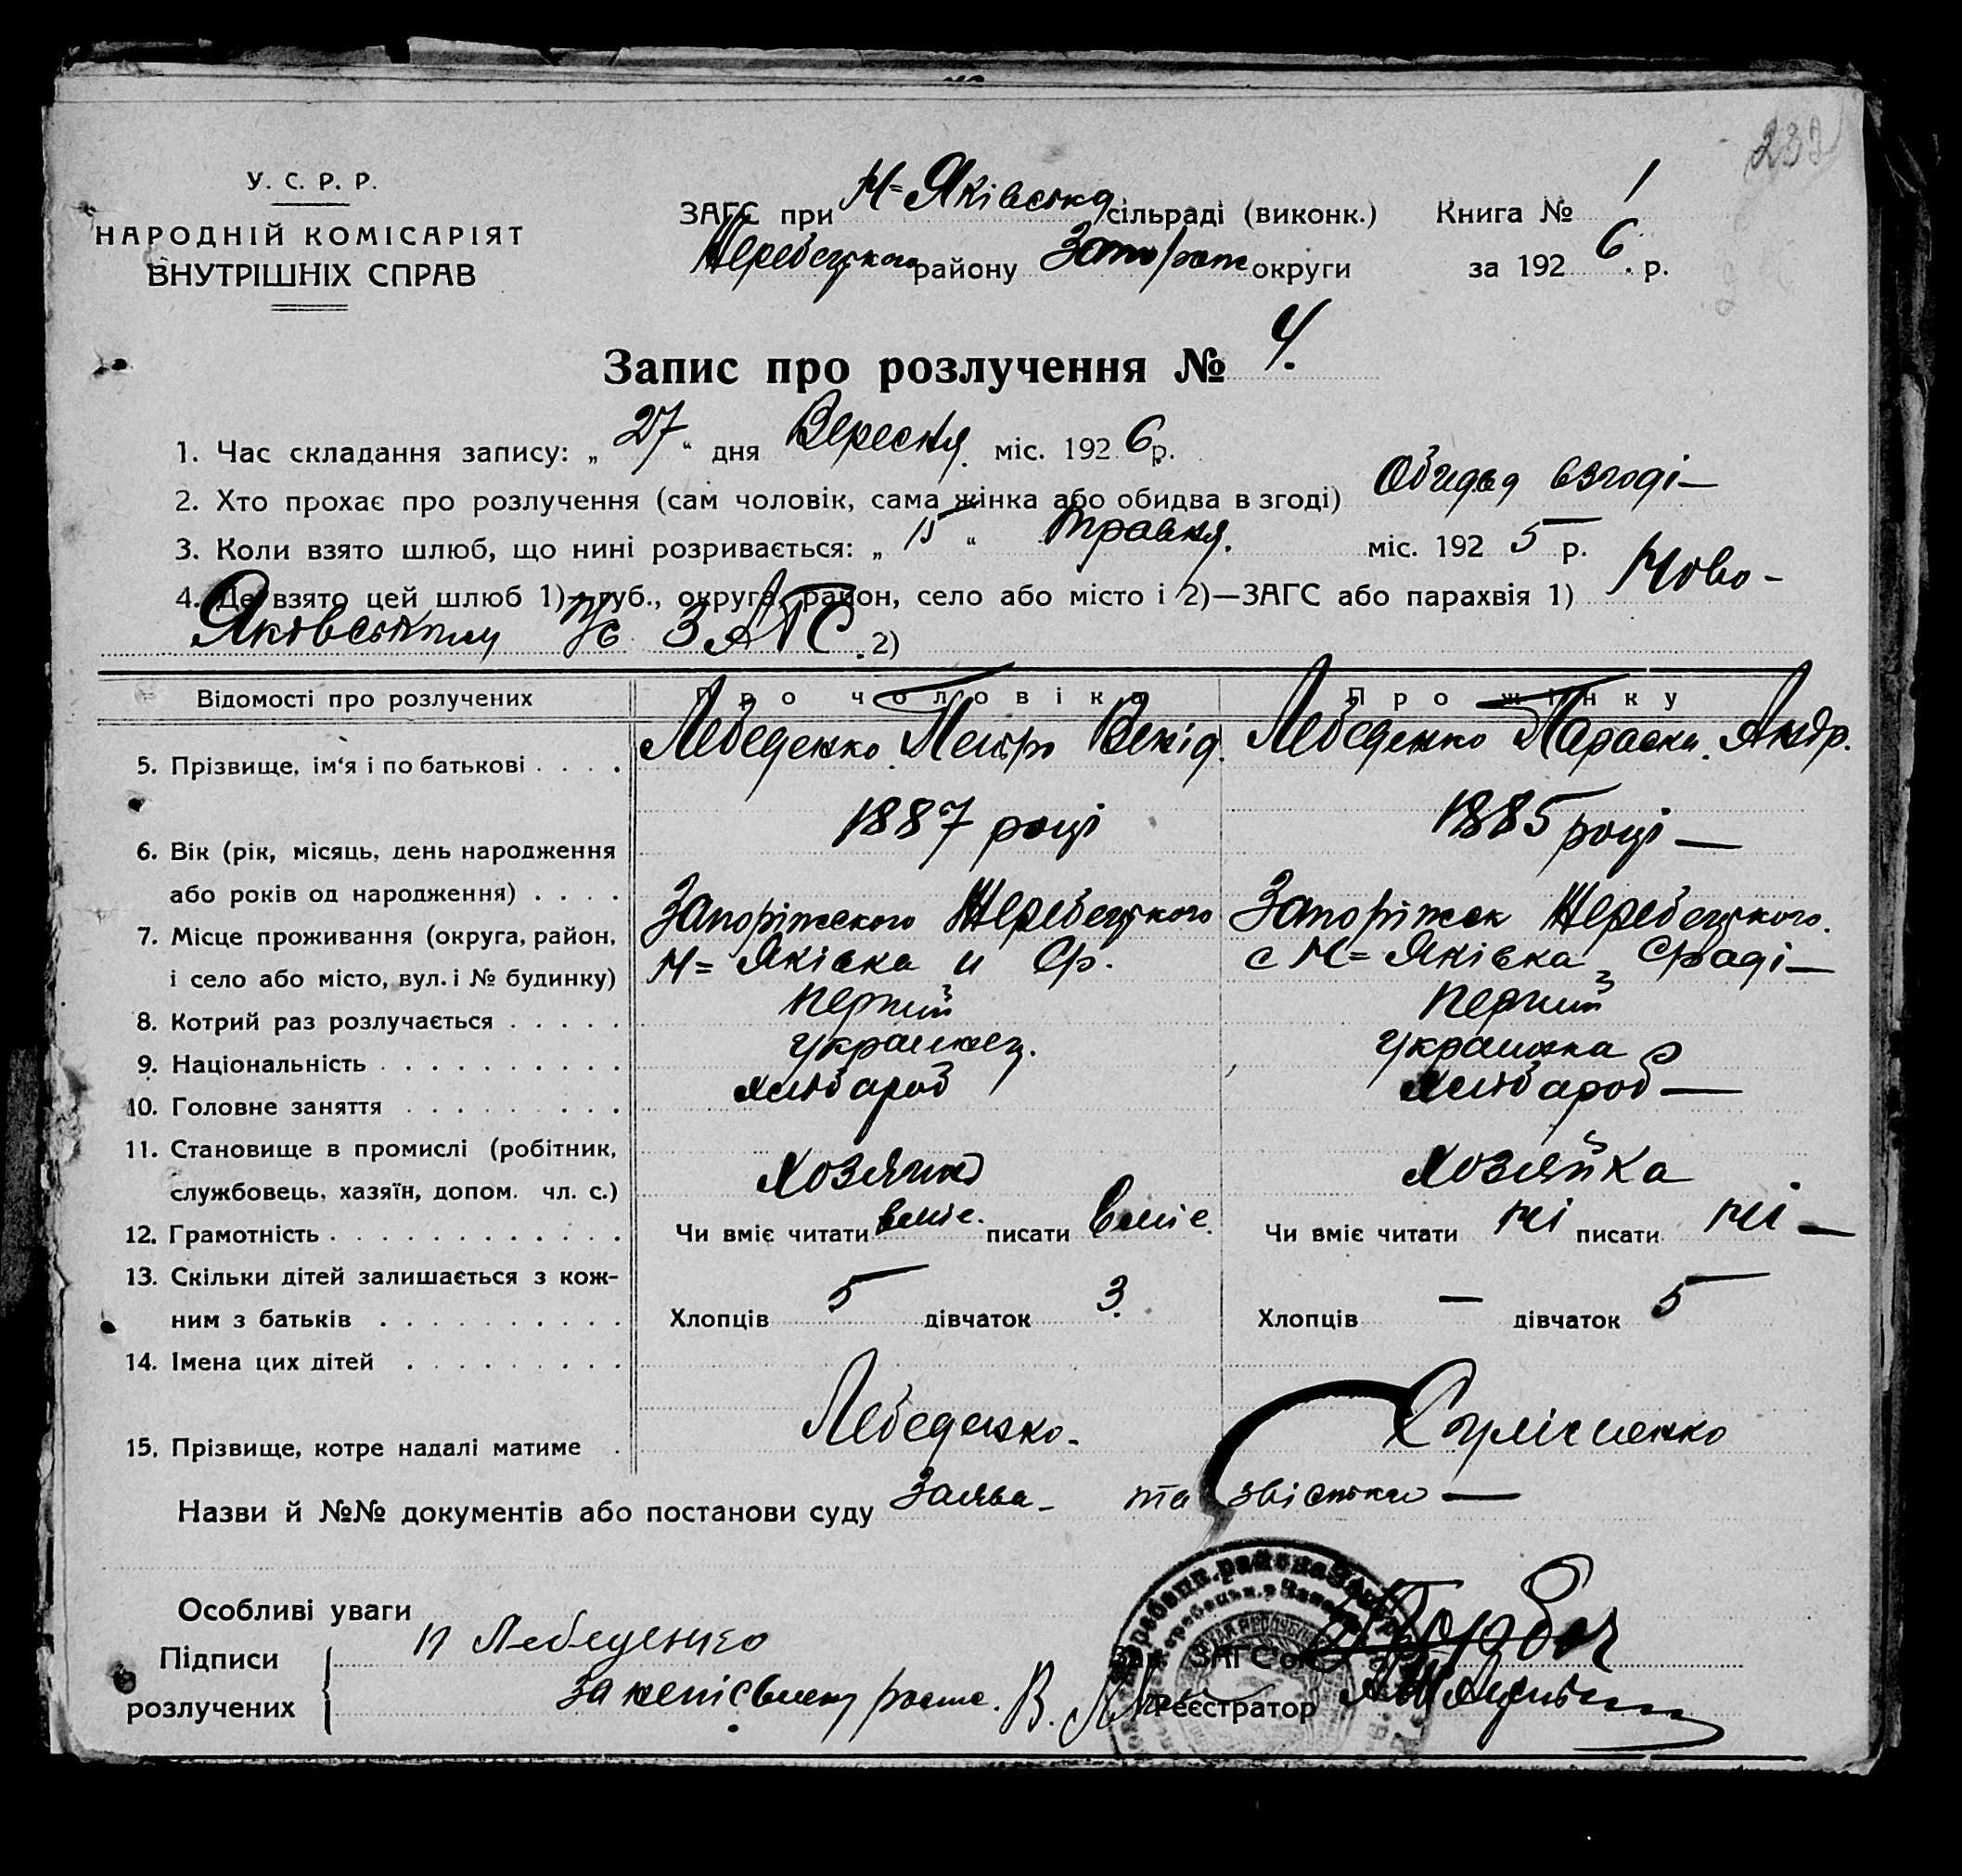 У. С. Р. Р.
НАРОДНІЙ КОМІСАРІЯТ
ВНУТРІШНІХ СПРАВ
ЗАГС при Н=Яківська сільраді (виконк.) Книга № 1
Жеребецького району Запоріж округи за 192 6. р.
Запис про розлучення № 4.
1. Час складання запису: „ 27 “ дня Вересня міс. 192 6 р.
2. Хто прохає про розлучення (сам чоловік, сама жінка або обидва в згоді) Обидва взгоді —
3. Коли взято шлюб, що нині розривається: „ 15 “ травня. міс. 192 5 р.
4. Де взято цей шлюб 1)—губ., округа, район, село або місто і 2)—ЗАГС або парахвія 1) Ново-
ЗАГС. 2)
Відомості про розлучених Про чоловіка Про жінку
5. Прізвище, ім‘я і по батькові . . . . Лебеденко Петро Лебеденко Параска. Андр.
6. Вік (рік, місяць, день народження 1887 році 1885 році —
або років од народження) . . . .
7. Місце проживання (округа, район, Запоріжського Жеребецького Запоріжск Жеребецького.
і село або місто, вул. і № будинку) Н= Яківка и Ср. с Н= Яківка Сраді —
8. Котрий раз розлучається . . . . . перший перший
9. Національність . . . . . . . . . . украинец. украинка
10. Головне заняття . . . . . . . . . хлібароб хлібароб —
11. Становище в промислі (робітник,
службовець, хазяїн, допом. чл. с.) Хозяин Хозяйка
12. Грамотність . . . . . . . . . . . . Чи вміє читати вміє. писати вміє. Чи вміє читати ні писати ні —
13. Скільки дітей залишається з кож-
ним з батьків . . . . . . . . . . Хлопців 5 дівчаток 3. Хлопців — дівчаток 5
14. Імена цих дітей . . . . . . . . .
15. Прізвище, котре надалі матиме . Лебеденко.
Назви й №№ документів або постанови суду Заява — та звістка —
Особливі уваги
Підписи П Лебеденко ЗАГС‘ом
розлучених За Реєстратор